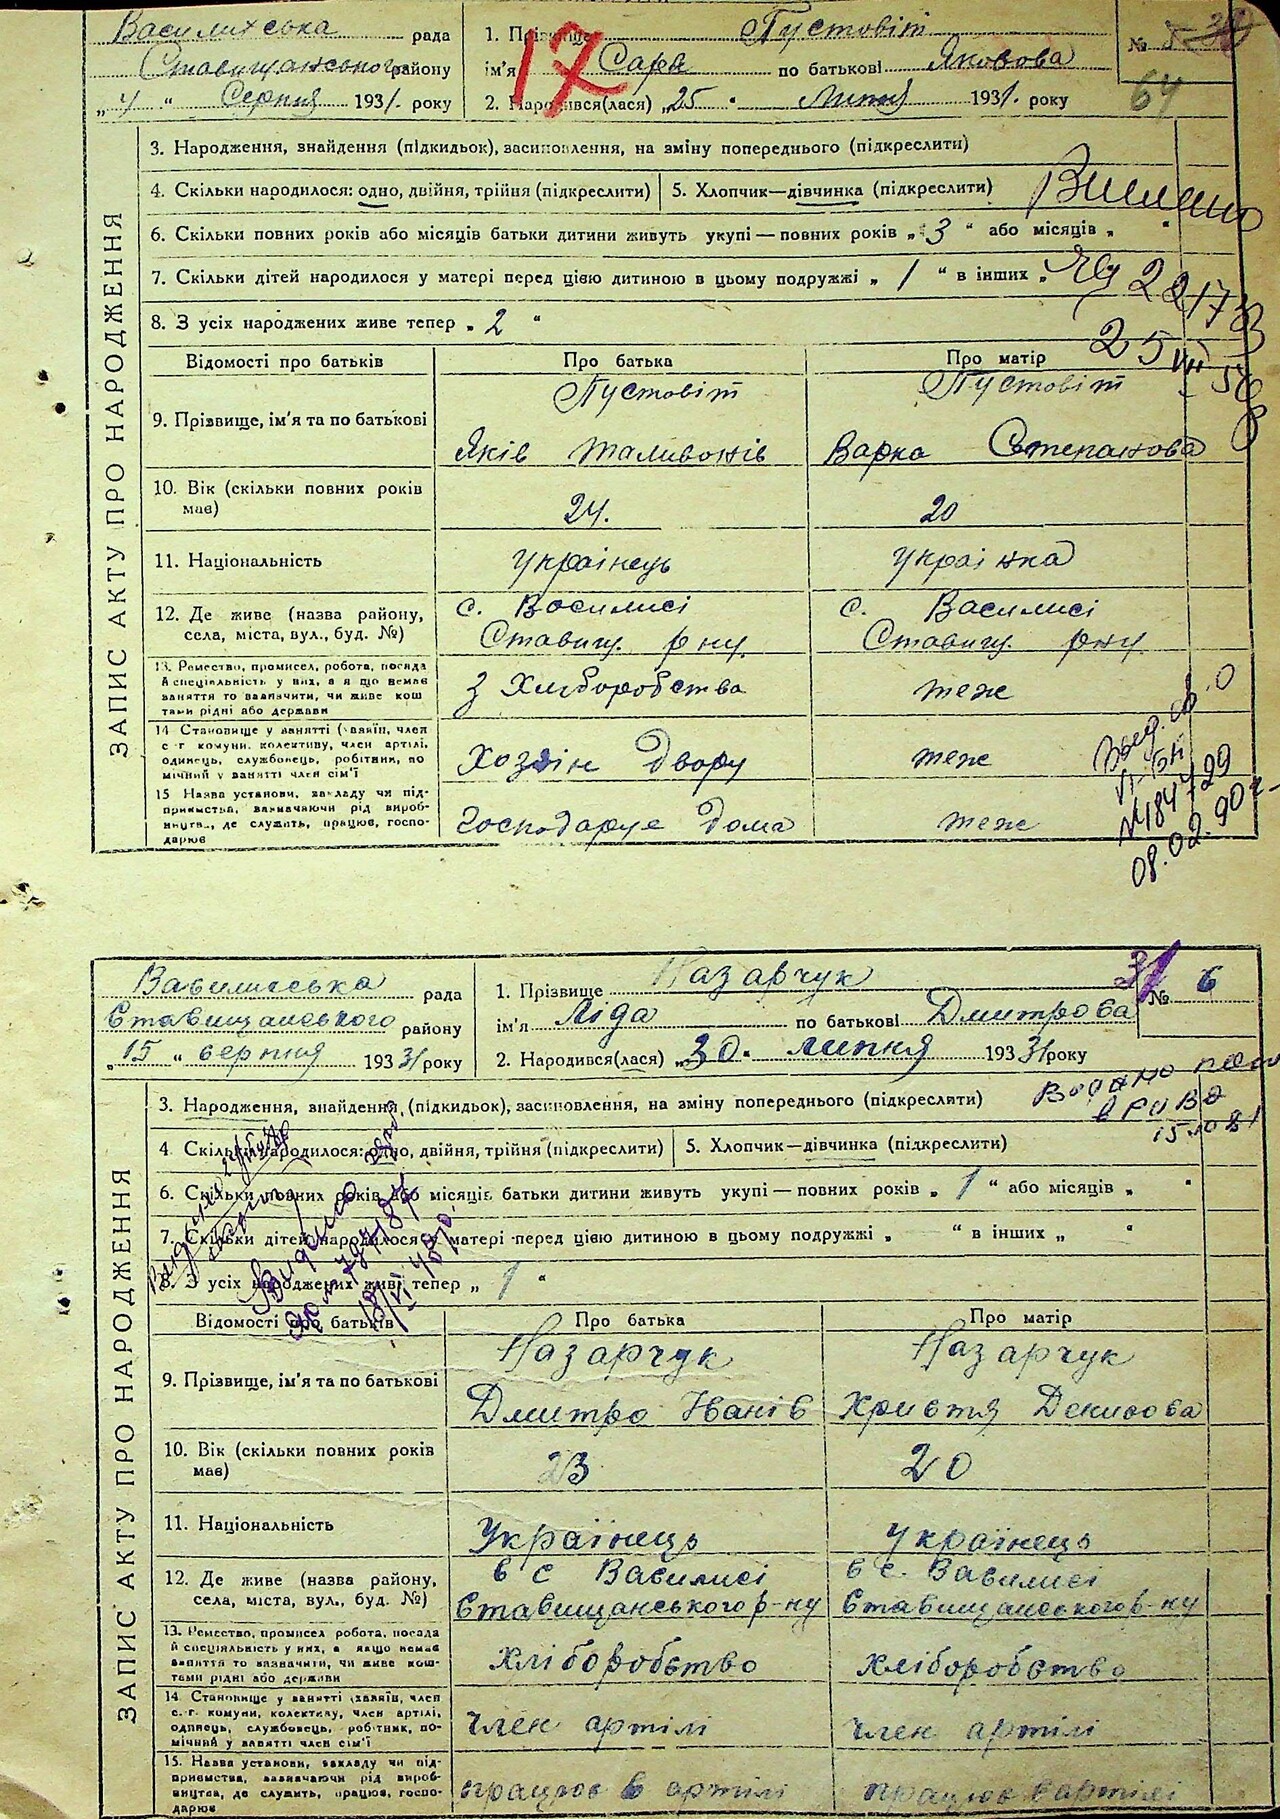 Василихська рада
Ставищанського району
„4“ Серпня 1931. року
1. Прізвище Пустовіт
ім'я Сара по батькові Яковова
2. Народився(лася) „25“ Липня 1931. року
№
64
17
ЗАПИС АКТУ ПРО НАРОДЖЕННЯ
3. Народження, знайдення (підкидьок), засиновлення, на зміну попереднього (підкреслити)
4. Скільки народилося: одно, двійня, трійня (підкреслити) 5. Хлопчик—дівчинка (підкреслити)
6. Скільки повних років або місяців батьки дитини живуть укупі—повних років „3“ або місяців „ “
7. Скільки дітей народилося у матері перед цією дитиною в цьому подружжі „1“ в інших „
8. З усіх народжених живе тепер „2“
25 VII 56
Відомості про батьків Про батька Про матір
9. Прізвище, ім'я та по батькові
Пустовіт Пустовіт
Яків Таливонів Варка Степанова
10. Вік (скільки повних років має) 24. 20
11. Національність українець українка
12. Де живе (назва району, села, міста, вул., буд. №)
с. Василисі с. Василисі
Ставищ. р ну. Ставищ. рну
13. Ремество, промисел, робота, посада й спеціальність у них, а я що немає заняття то зазначити, чи живе кош тами рідні або держави
з Хліборобства теж
14 Становище у занятті (хазяїн, член с-г комуни, колективу, член артілі, одинець, службовець, робітник, по мічний у занятті член сім'ї
Хозяін двору теж
15 Назва установи, закладу чи під-приємства, зазначаючи рід вироб-ництва, де служить, працює, госпо-дарює
Господарує дома теж
№184729
08.02.90 г.
Василиська рада
Ставищанського району
„15“ серпня 1933 31 року
1. Прізвище Назарчук
ім'я Ліда по батькові Дмитрова
2. Народився(лася) „30. липня 1933 31 року
31 № 6
ЗАПИС АКТУ ПРО НАРОДЖЕННЯ
3. Народження, знайдення, (підкидьок), засиновлення, на зміну попереднього (підкреслити)
4 Скільки народилося: одно, двійня, трійня (підкреслити) 5. Хлопчик—дівчинка (підкреслити)
6. Скільки повних років або місяців батьки дитини живуть укупі—повних років „1“ або місяців „ “
7. Скільки дітей народилося у матері перед цією дитиною в цьому подружжі „ “ в інших „ “
8. З усіх народжених живе тепер „1“
Видано
Відомості про батьків Про батька Про матір
9. Прізвище, ім'я та по батькові
Назарчук Назарчук
Дмитро Іванів Христя Денисова
10. Вік (скільки повних років має) 23 20
11. Національність Українець українець
12. Де живе (назва району, села, міста, вул., буд. №)
в с Василисі в с. Василисі
Ставищанського р-ну Ставищанського р-ну
13. Ремество, промисел робота, посада й спеціяльність у них, а якщо немає заняття то зазначити, чи живе кош-тами рідні або держави
хліборобство хліборобство
14. Становище у занятті (хазяїн, член с.-г комуни, колективу, член артілі, одинець, службовець, робітник, по-мічний у занятті член сім'ї
член артілі член артілі
15. Назва установи, закладу чи під-приємства, зазначаючи рід вироб-ництва, де служить, працює, госпо-дарює
працює в артілі працює в артілі